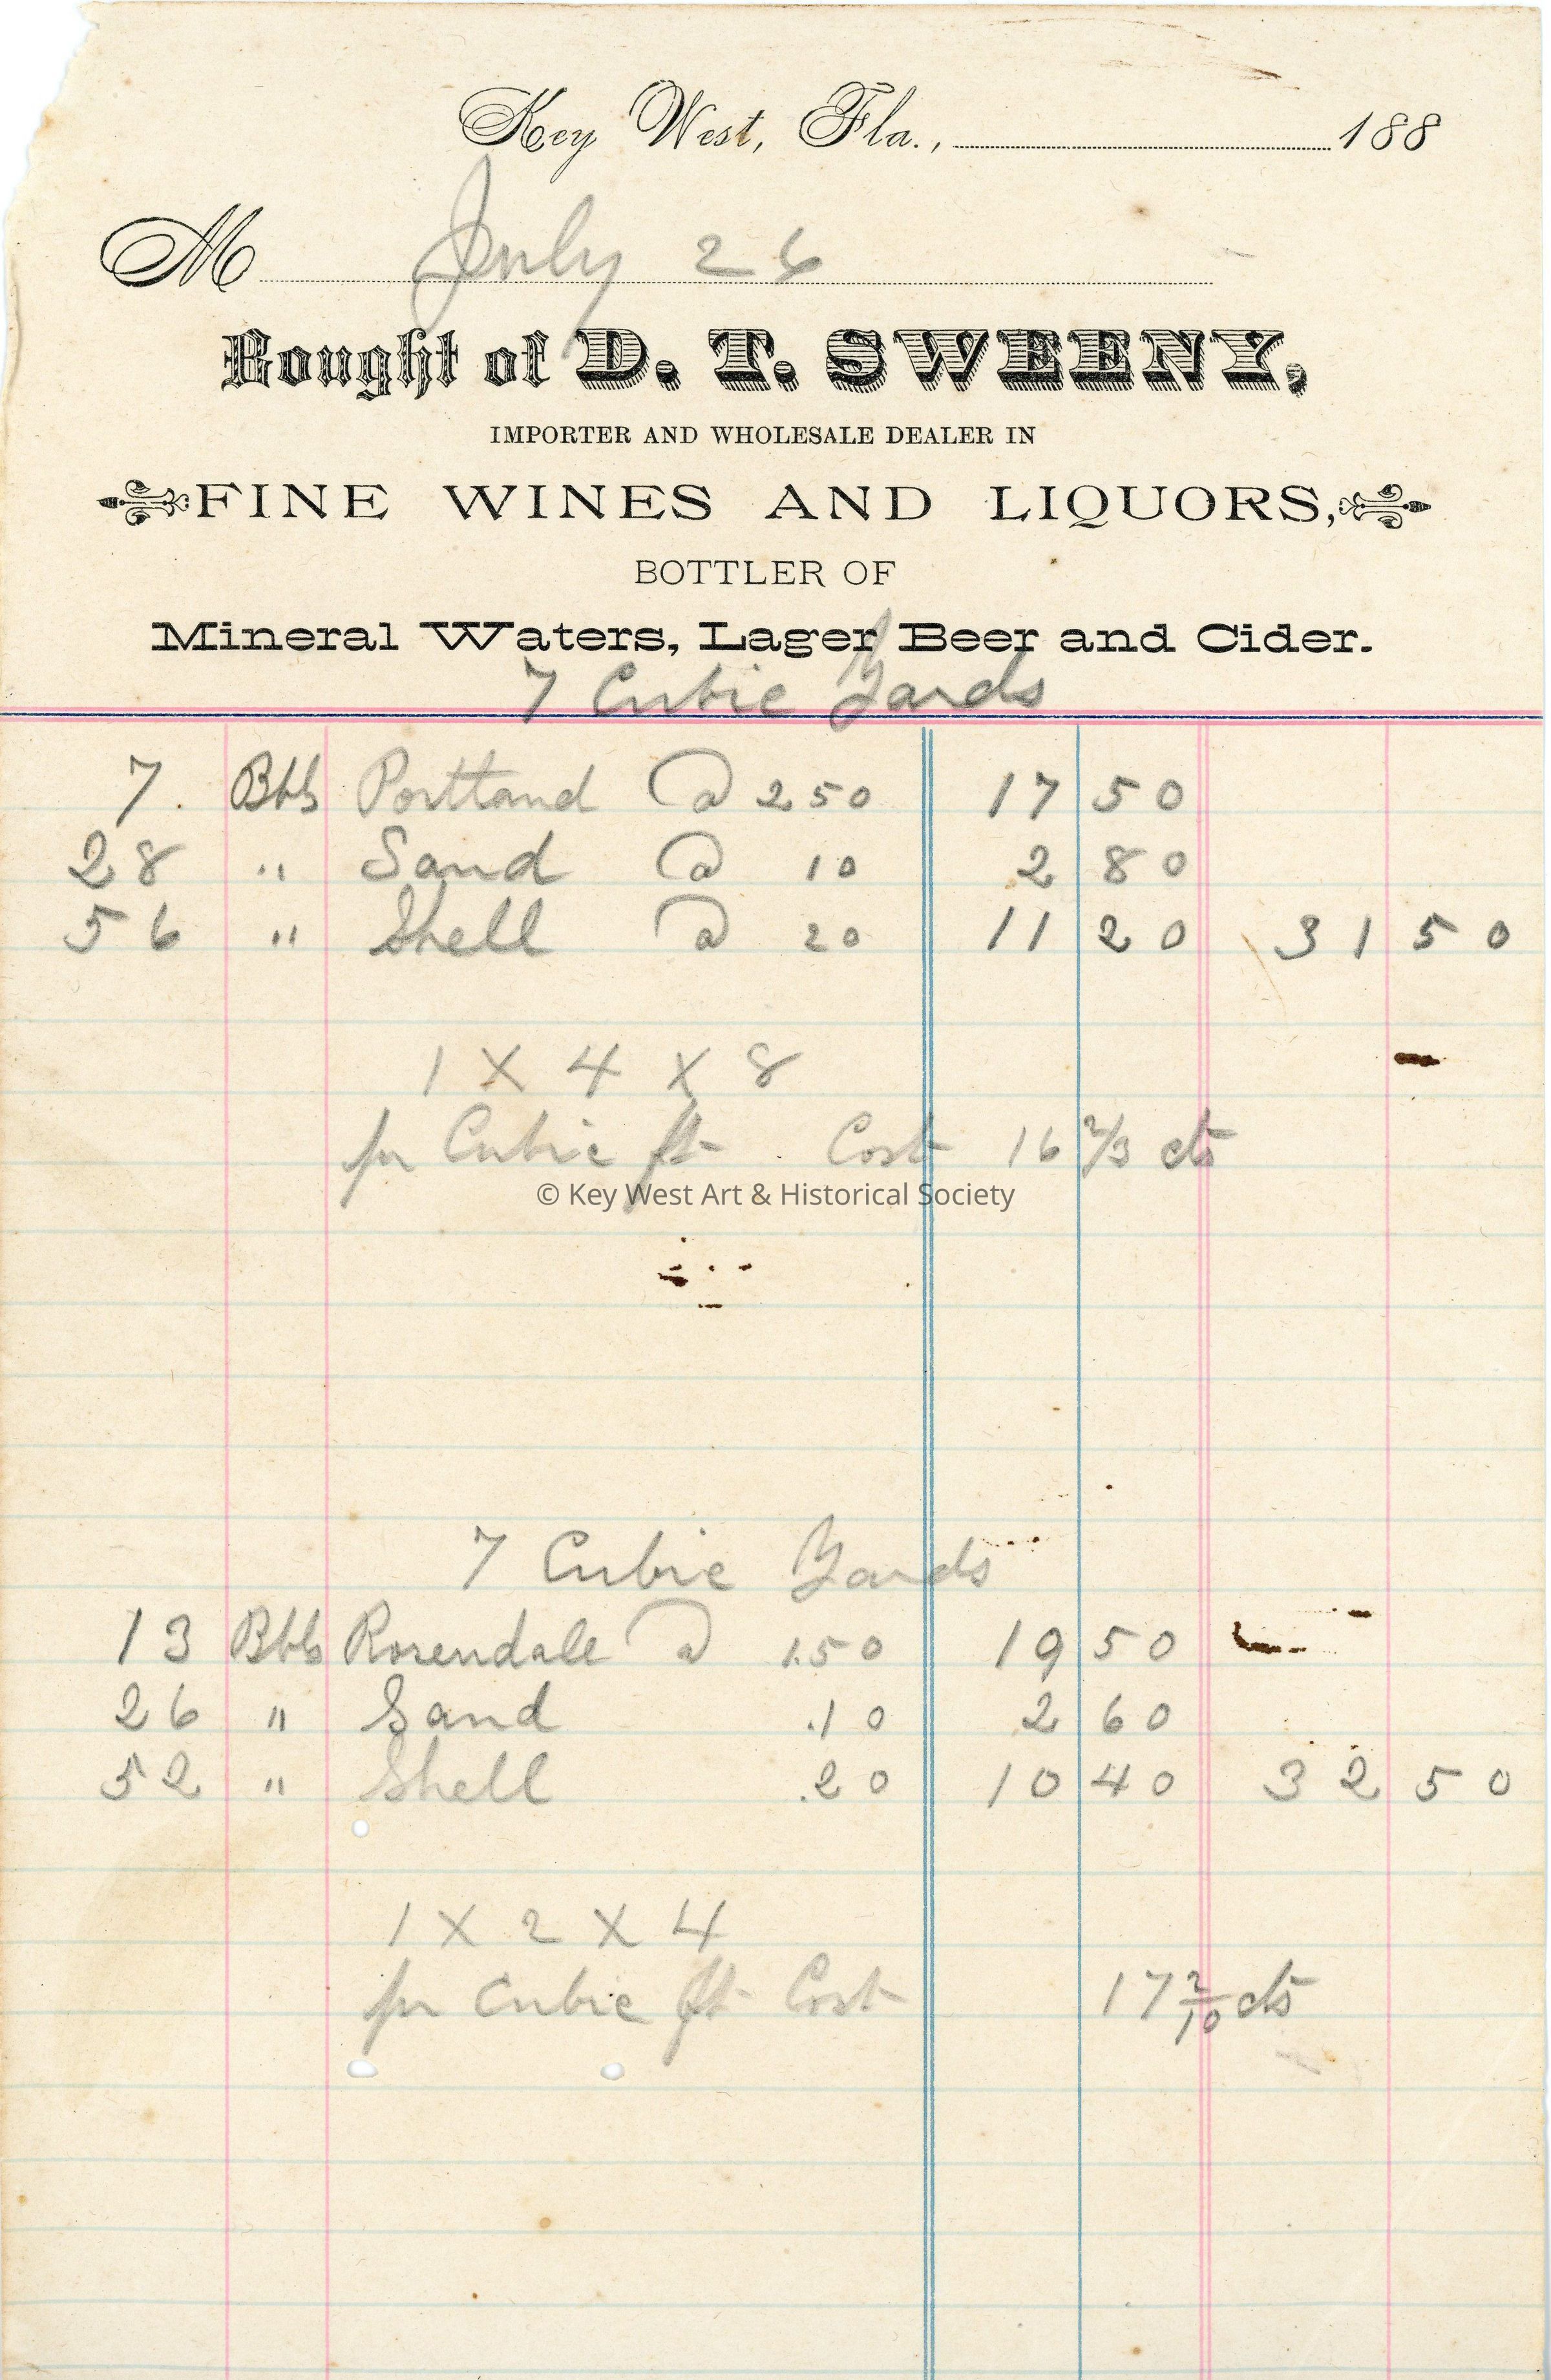 Key West, Fla., 188
M July 26
Bought of D. T. SWEENY,
IMPORTER AND WHOLESALE DEALER IN
FINE WINES AND LIQUORS,
BOTTLER OF
Mineral Waters, Lager Beer and Cider.
7 Cubic Yards
7. Bbls Portland @ 250 17 50
28 " Sand @ 10 2 80
56 " Shell @ 20 11 20 31 50
1 X 4 X 8
per Cubic ft. Cost 16 2/3 cts
© Key West Art & Historical Society
7 Cubic Yards
13 Bbls Rosendale @ 1.50 19 50
26 " Sand .10 2 60
52 " Shell .20 10 40 32 50
1 X 2 X 4
per Cubic ft Cost 17 2/10 cts